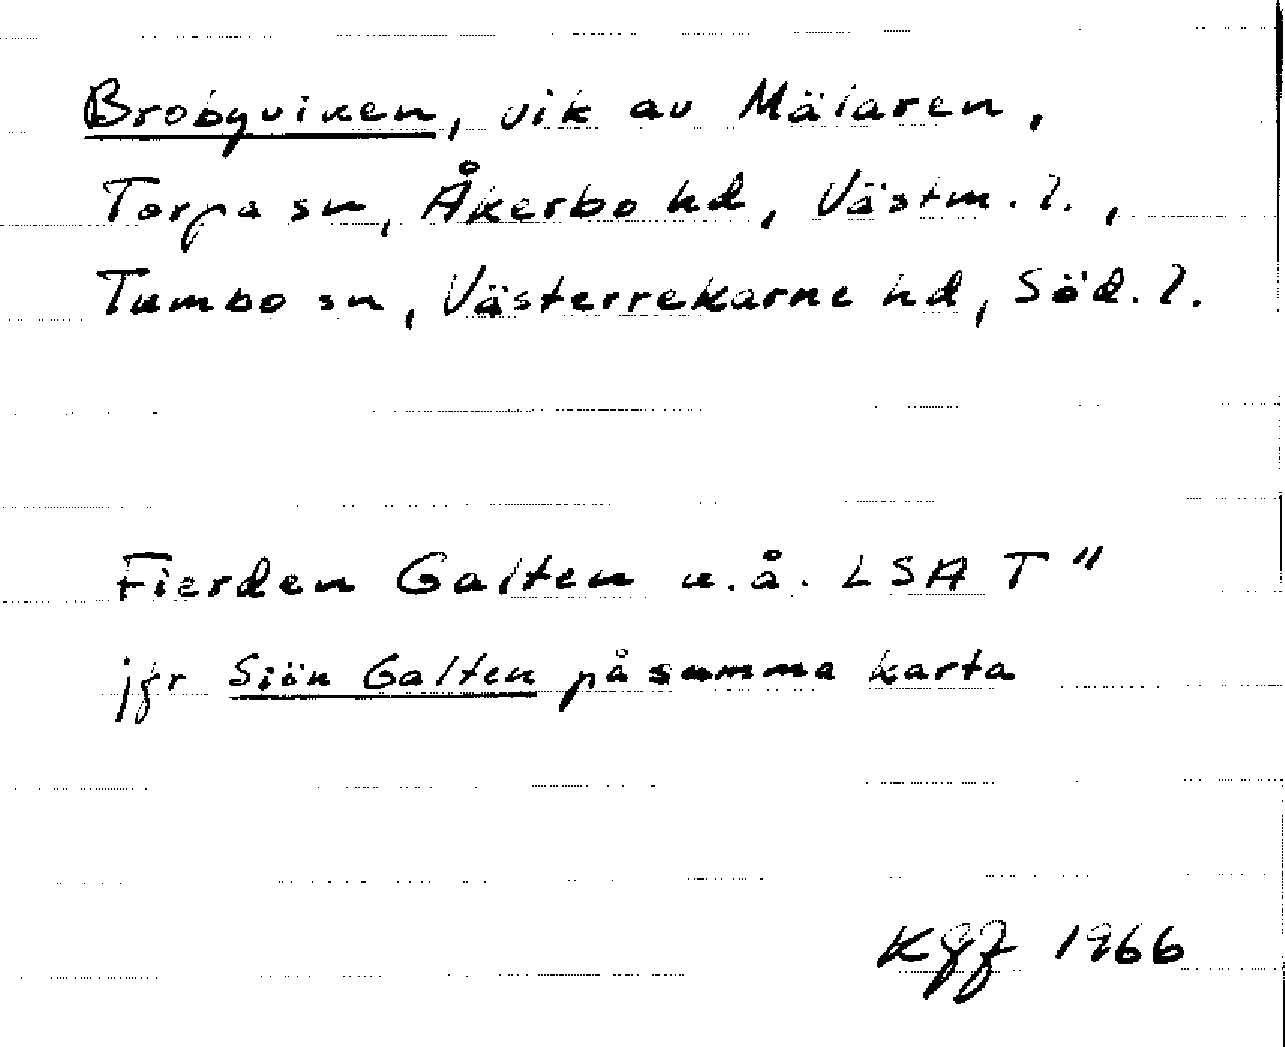 Brobyviken, vik av Mälaren,
Torpa sn, Åkerbo hd, Västm. l.,
Tumbo sn, Västerrekarne hd, Söd. l.
Fierden Galten u.å. LSA T"
jfr Siön Galten på samma karta
1966